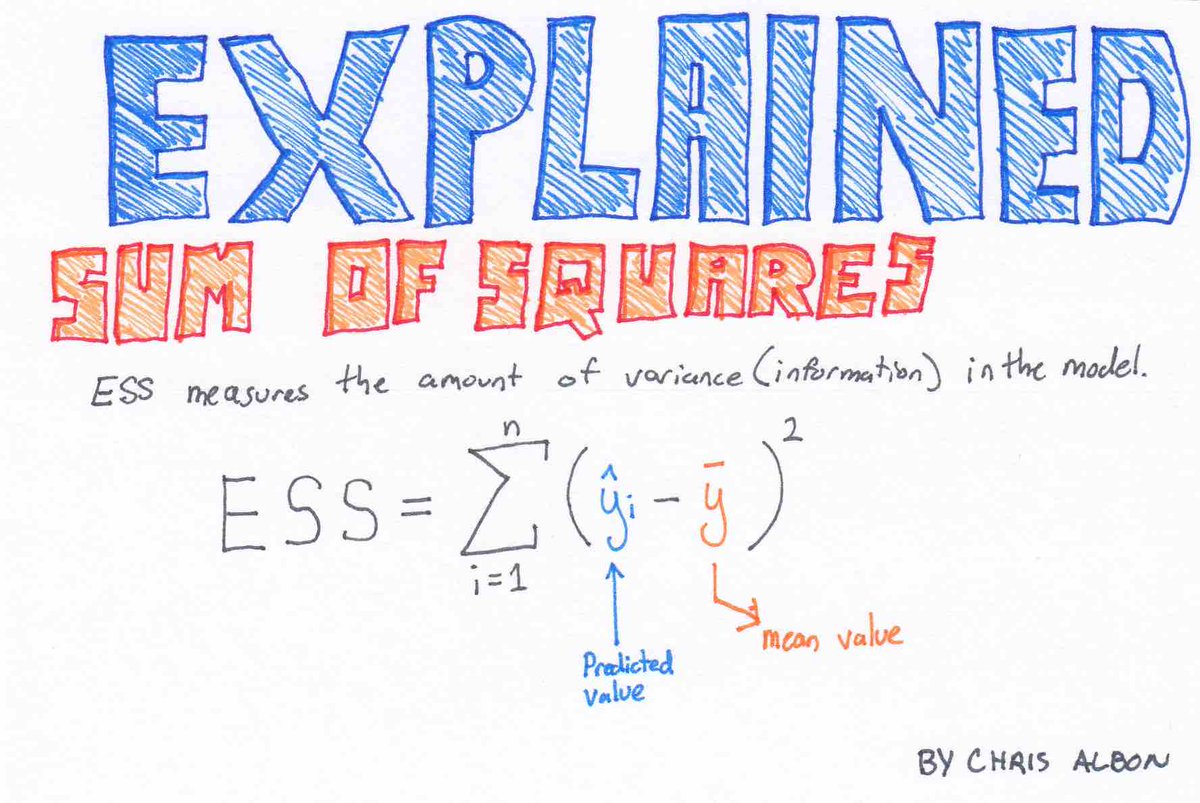 EXPLAINED
SUM OF SQUARES
ESS measures the amount of variance (information) in the model.
n
ESS = Σ (ŷi - ȳ)²
i=1
mean value
Predicted
value
BY CHRIS ALBON